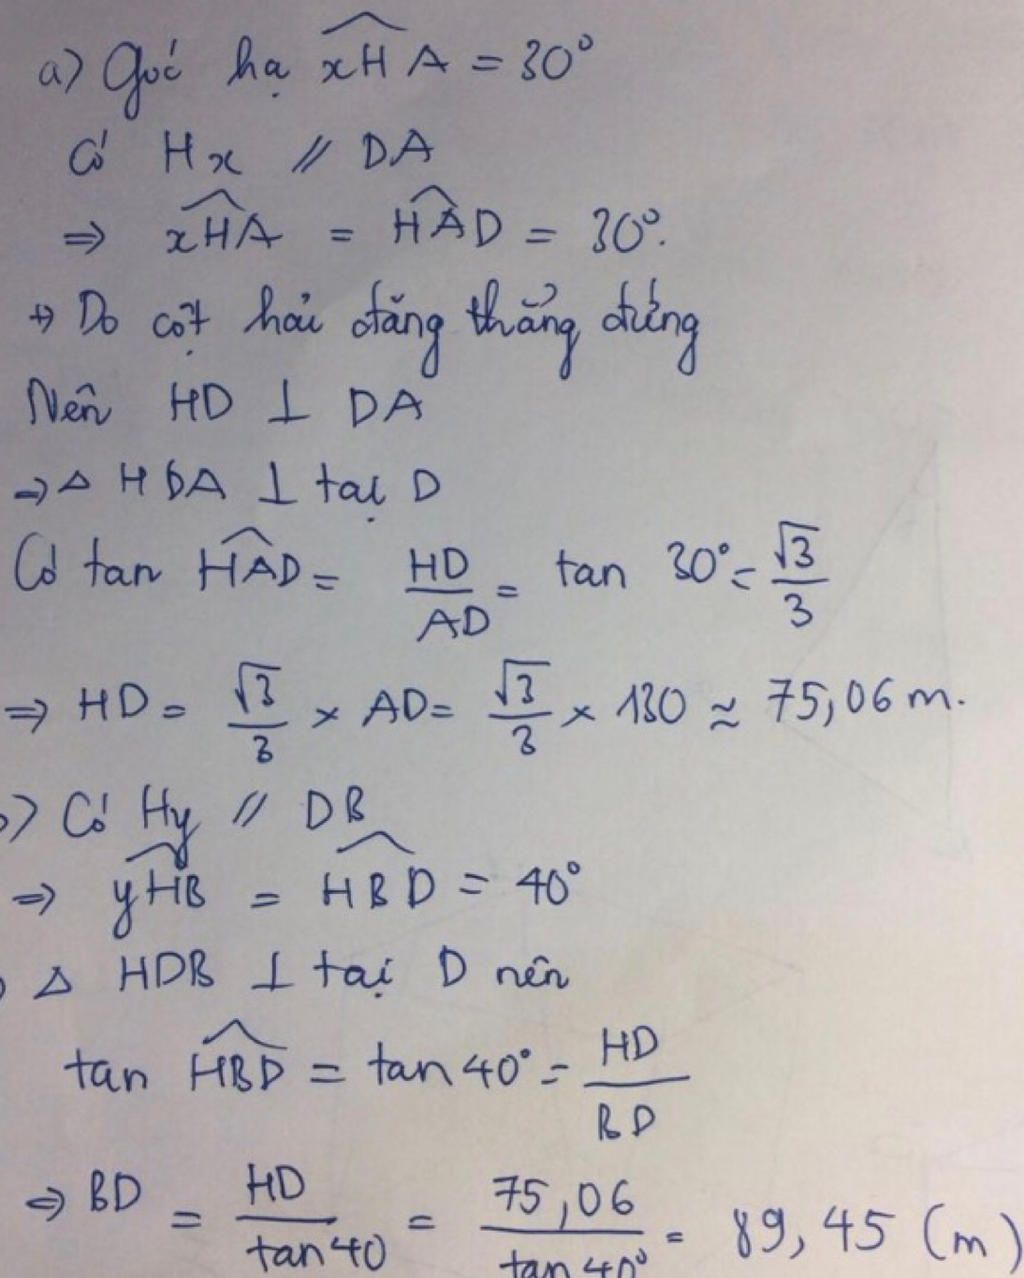 a) Góc hạ xHA = 30°
Có Hx // DA
⇒ xHA = HAD = 30°.
→ Do cột hải đăng thẳng đứng
Nên HD ⊥ DA
⇒ △ HDA ⊥ tại D
Có tan HAD = HD/AD = tan 30° = √3/3
⇒ HD = √3/3 × AD = √3/3 × 130 ≈ 75,06 m.
b) Có Hy // DB
⇒ yHB = HBD = 40°
△ HDB ⊥ tại D nên
tan HBD = tan 40° = HD/BD
⇒ BD = HD/tan 40 = 75,06/tan 40° = 89,45 (m)